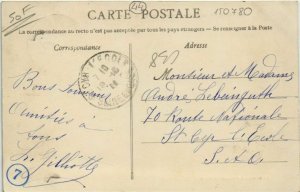 50F
44
150780
CARTE POSTALE
La correspondance au recto n'est pas acceptée par tous les pays étrangers — Se renseigner à la Poste
Correspondance
Adresse
Bons Souvenirs
Amitiés à
tous
Monsieur et Madame
André
70 Route Nationale
St Cyr l'Ecole
S. et O.
7